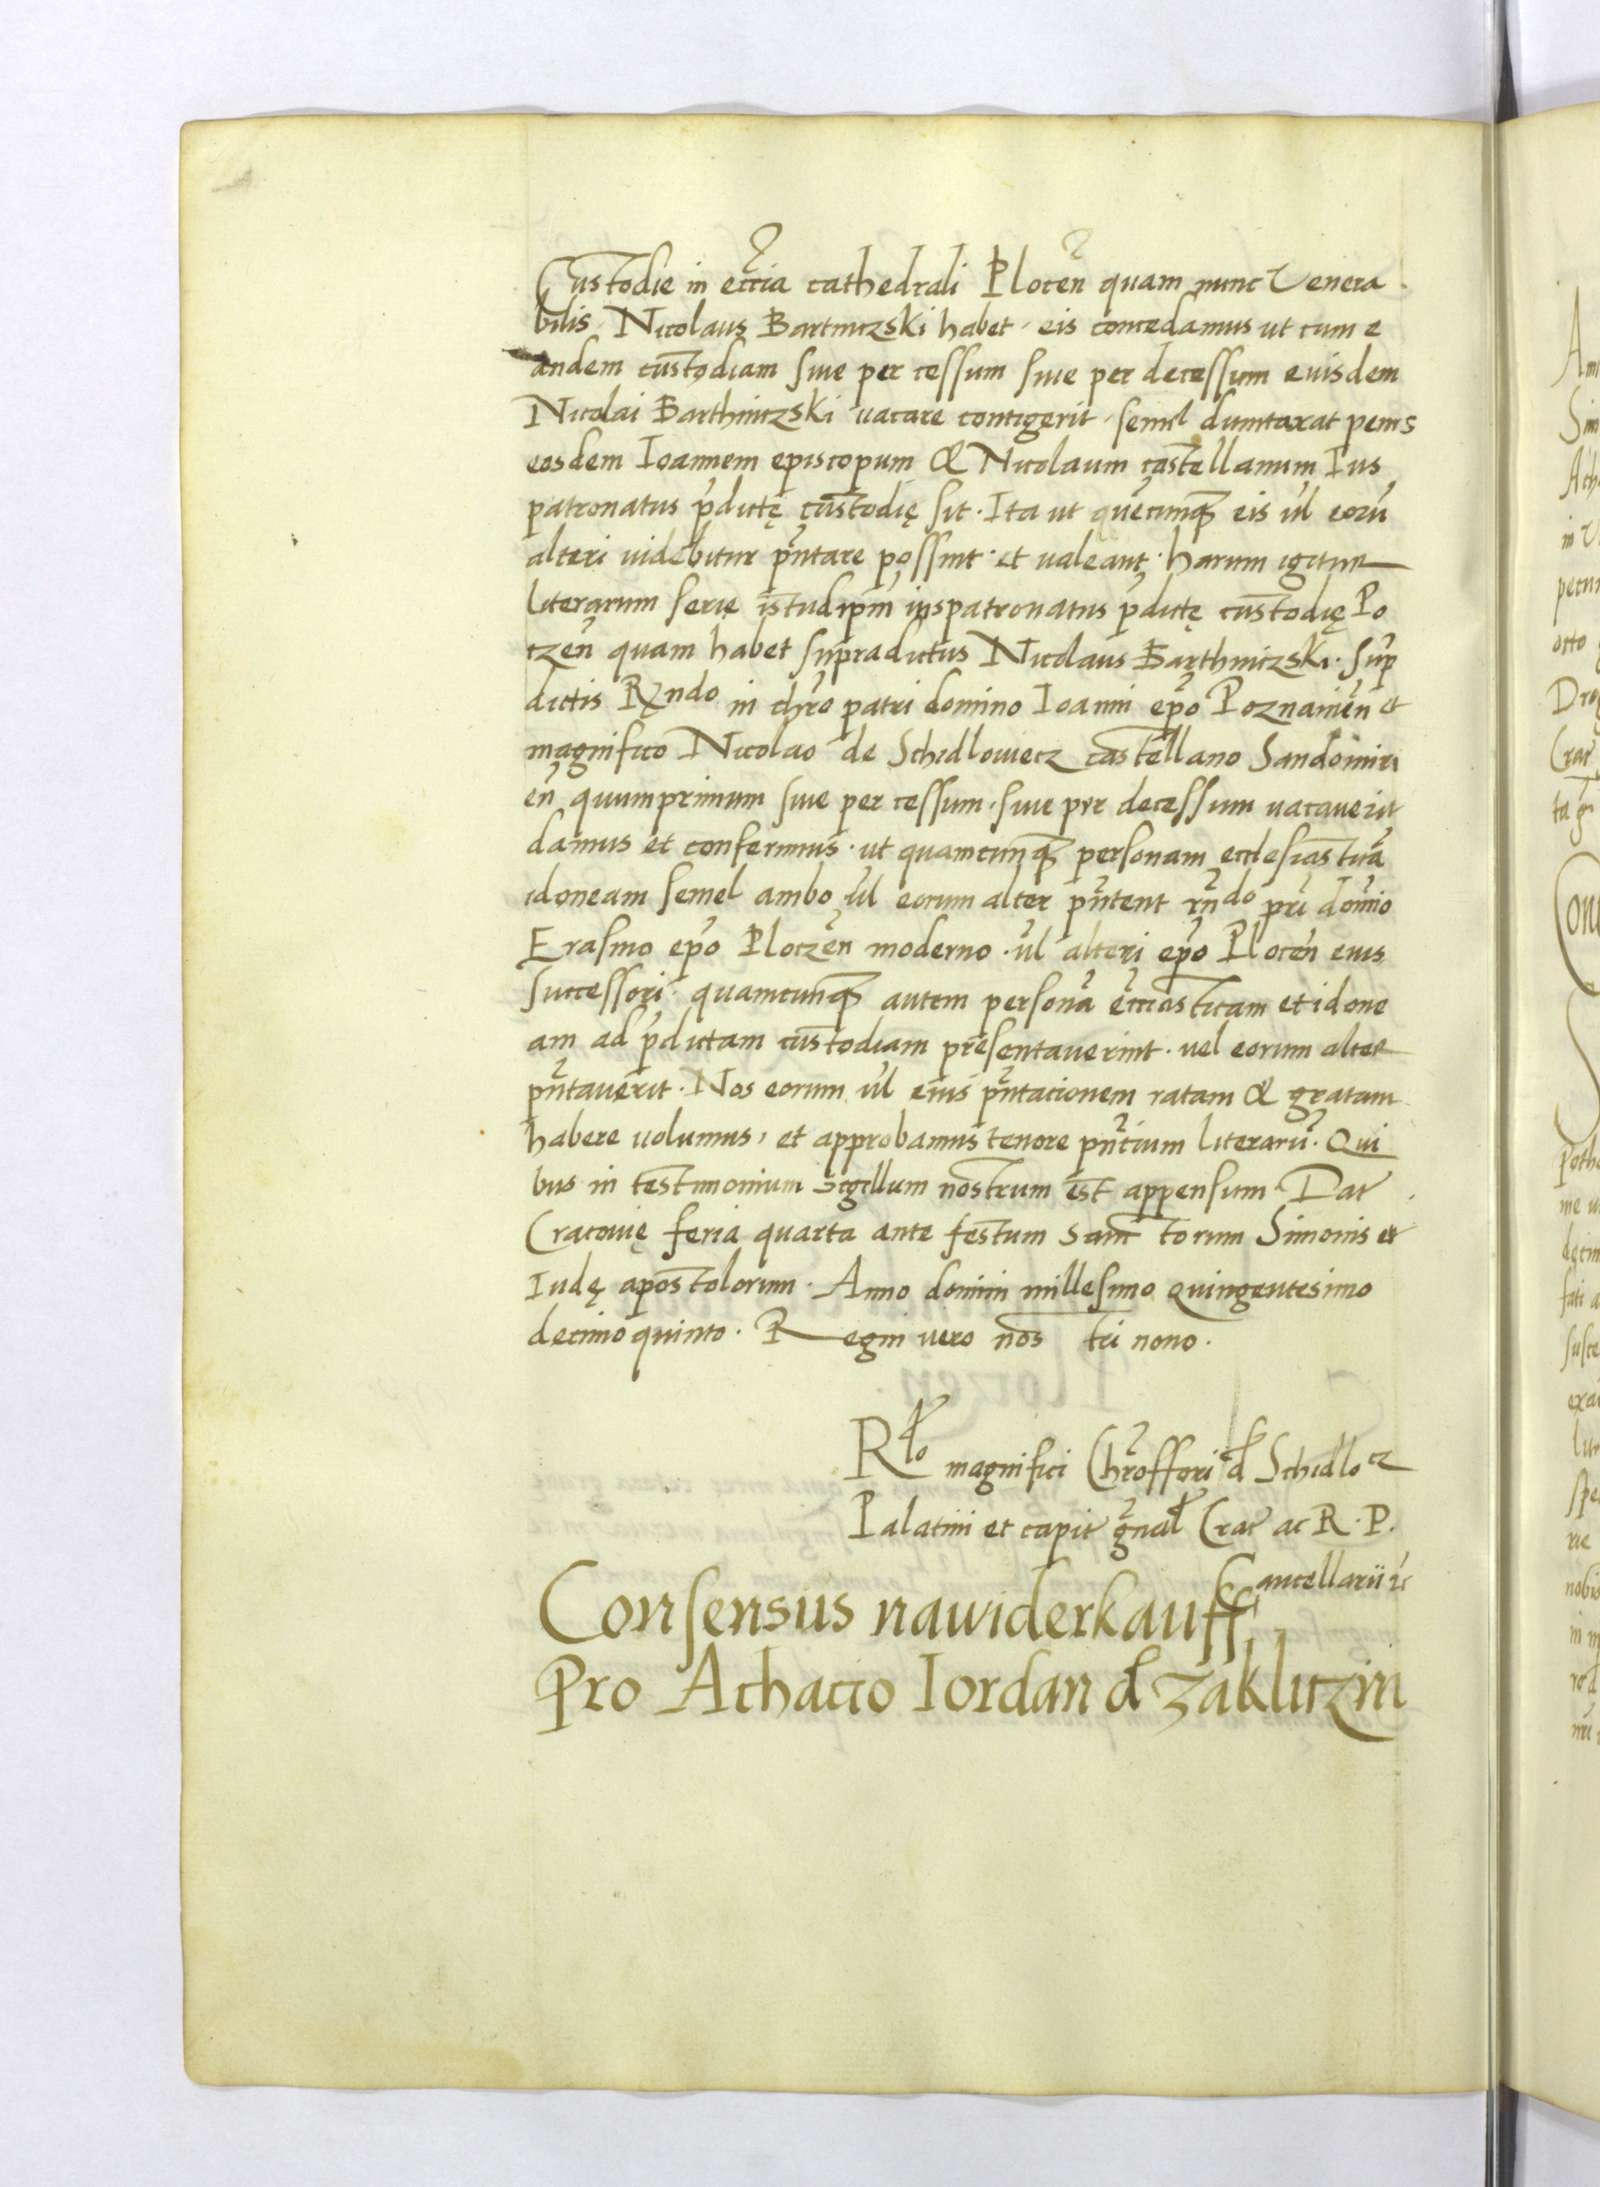 Custodie in eccia cathedrali Plocen quam nunc Venera
bilis Nicolaus Bartniczski habet eis concedamus ut cum e
andem custodiam siue per cessum siue per decessum euisdem
Nicolai Barthniczski vacare contigerit semel dumtaxat penes
eosdem Ioannem episcopum & Nicolaum castellanum Ius
patronatus pdictę custodię sit. Ita ut quecunqȝ eis ul eorū
alteri uidebitur pntare possint et valeant. harum igitur
literarum serie istud ipm iuspatronatus pdictę custodię Po
czen quam habet supradictus Nicolaus Barthniczski. sup
dictis Rndo in chro patri domino Ioanni epo Poznanien et
magnifico Nicolao de Schidlowiecz castellano Sandomiri
en quumprimum siue per cessum. siue per decessum uacauerit
damus et conferimus. ut quamcunqȝ personam ecclesiasticā
idoneam semel ambo ul eorum alter pntent rndo pri domio
Erasmo epo Ploczen moderno. ul alteri epo Plocen eius
successori. quamcunqȝ autem personā ecciasticam et idone
am ad pdictam custodiam presentauerint. uel eorum alter
pntauerit. Nos eorum ul eius pntacionem ratam & gratam
habere uolumus, et approbamus tenore pntium literarū. Qui
bus in testimonium sigillum nostrum est appensum. Dat
Cracouię feria quarta ante festum Sanctorum Simonis et
Iudę apostolorum. Anno domini millesimo quingentesimo
decimo quinto. Regni vero nostri nono.
Rlo magnifici Chrofferi d Schidlocz
Palatini et capit gnal Crac ac R. P.
Cancellarii
Consensus nawiderkauff
pro Achacio Iordan d Zakliczin